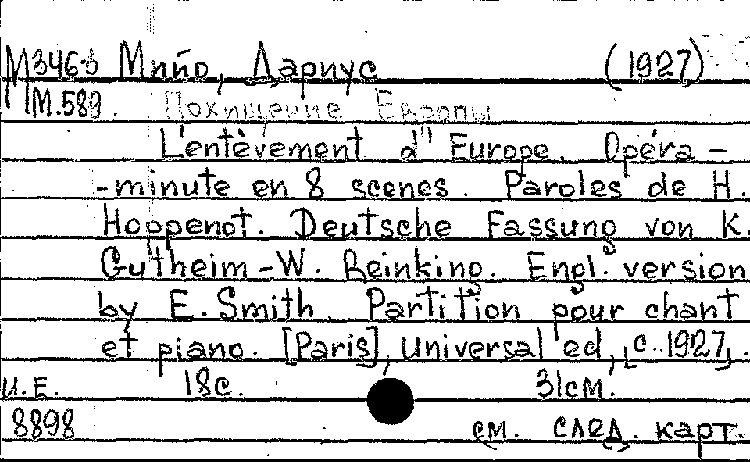 М346-3 Мийо, Дариус (1927)
М.589. Похищение Европы
L'entèvement d'' Europe. Opéra -
-minute en 8 scenes. Paroles de H.
Hoppenot. Deutsche Fassung von K.
Gutheim-W. Reinking. Engl. version
by E. Smith. Partition pour chant
et piano. [Paris], Universal ed, [c. 1927].
U.E. 18с. 31см.
8898 см. след. карт.